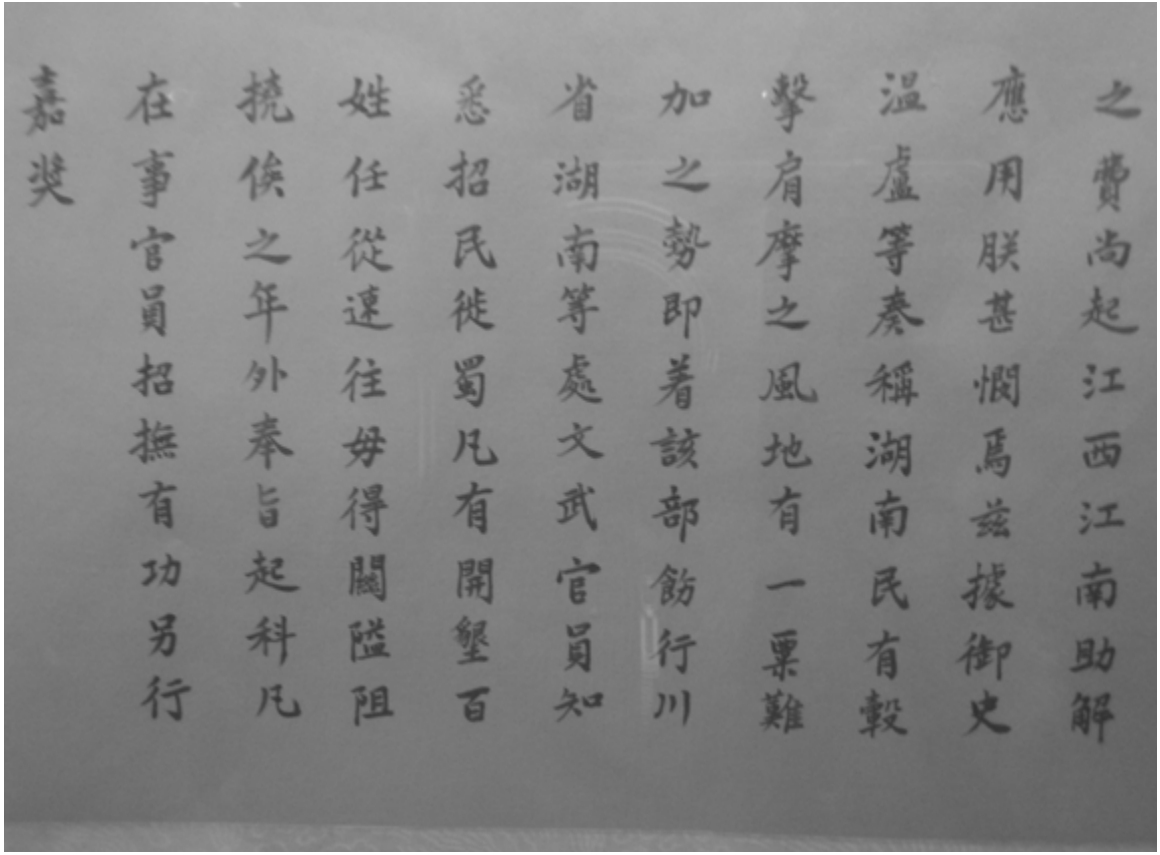 之費尚起江西江南助解
應用朕甚憫焉茲據御史
溫盧等奏稱湖南民有轂
擊肩摩之風地有一粟難
加之勢即着該部飭行川
省湖南等處文武官員知
悉招民徙蜀凡有開墾百
姓任從遠往毋得關隘阻
撓俟之年外奉旨起科凡
在事官員招撫有功另行
嘉奖